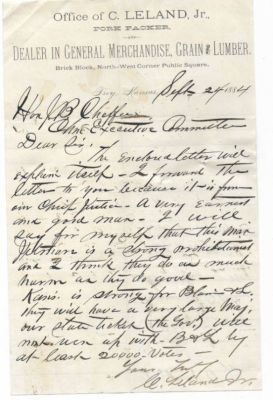 Office of C. LELAND, Jr.,
PORK PACKER,
AND
DEALER IN GENERAL MERCHANDISE, GRAIN & LUMBER.
Brick Block, North-West Corner Public Square,
Troy, Kansas, Sept 24 1884
Hon J B Chaffee
Executive Committee
Dear Sir,
The Enclosed letter will
explain itself - I forward the
letter to you because it is from
our Chief Justice - A very Earnest
and good man - I will
say for myself that this Man
is a strong prohibitionist
and I think they do as much
harm as they do good -
Kans. is strong for Blaine & L.
they will have a very large Maj.
our State ticket (the Gov.) will
not run up with B & L by
at least 20000 Votes -
Yours Truly
C. Leland Jr.